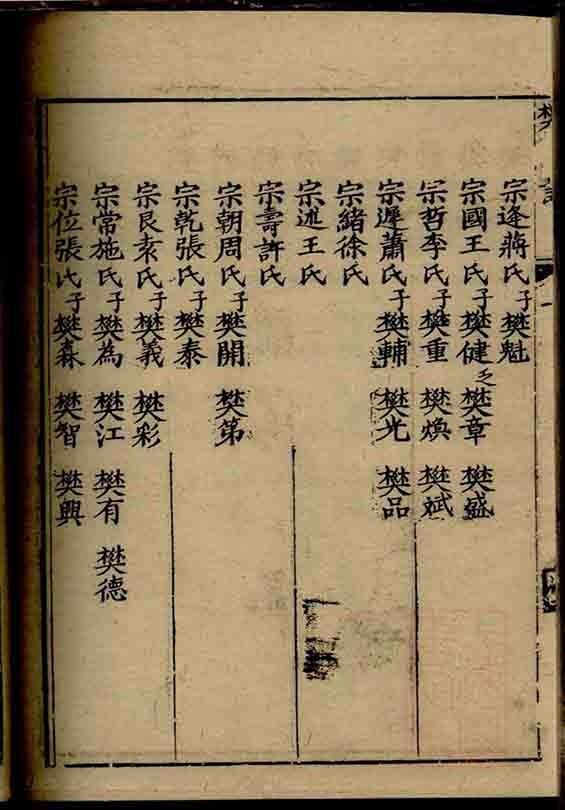 宗逢蔣氏子樊魁
宗國王氏子樊健乏樊章 樊盛
宗哲李氏子樊重 樊煥 樊斌
宗遲蕭氏子樊輔 樊光 樊品
宗緒徐氏
宗述王氏
宗壽許氏
宗朝周氏子樊開 樊第
宗乾張氏子樊泰
宗艮袁氏子樊義 樊彩
宗常施氏子樊為 樊江 樊有 樊德
宗位張氏子樊森 樊智 樊興